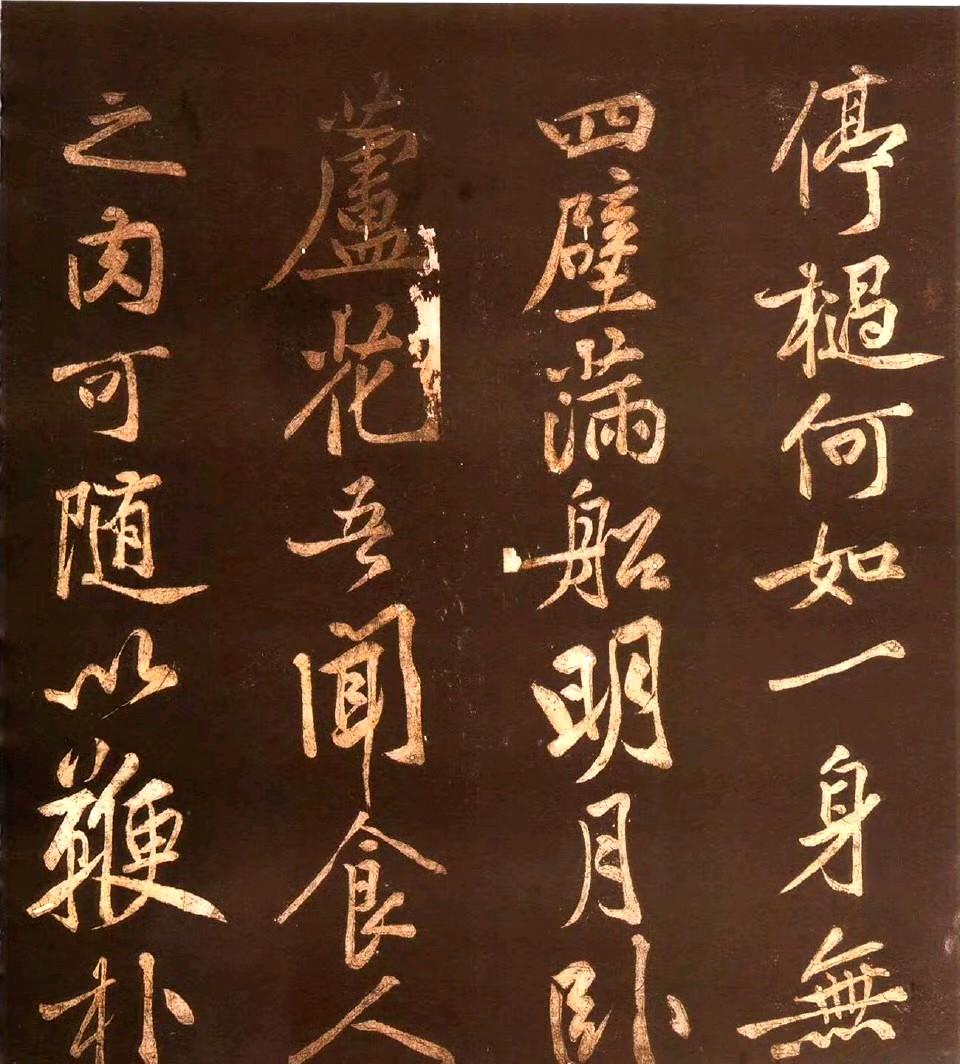 停檛何如一身無
四壁滿船明月臥
蘆花吾聞食人
之肉可随以鞭朴